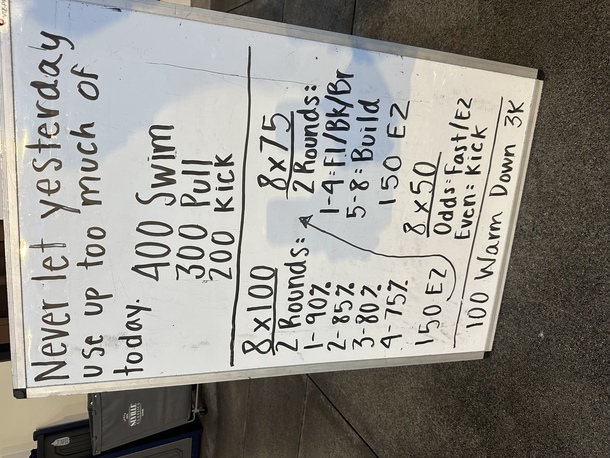 Never let yesterday
use up too much of
today.
400 Swim
300 Pull
200 Kick
8x100
2 Rounds:
1-90%
2-85%
3-80%
4-75%
150 EZ
8x75
2 Rounds:
1-4:Fl/Bk/Br
5-8:Build
150 EZ
8x50
Odds:Fast/EZ
Even:Kick
100 Warm Down 3K
NEVILLE